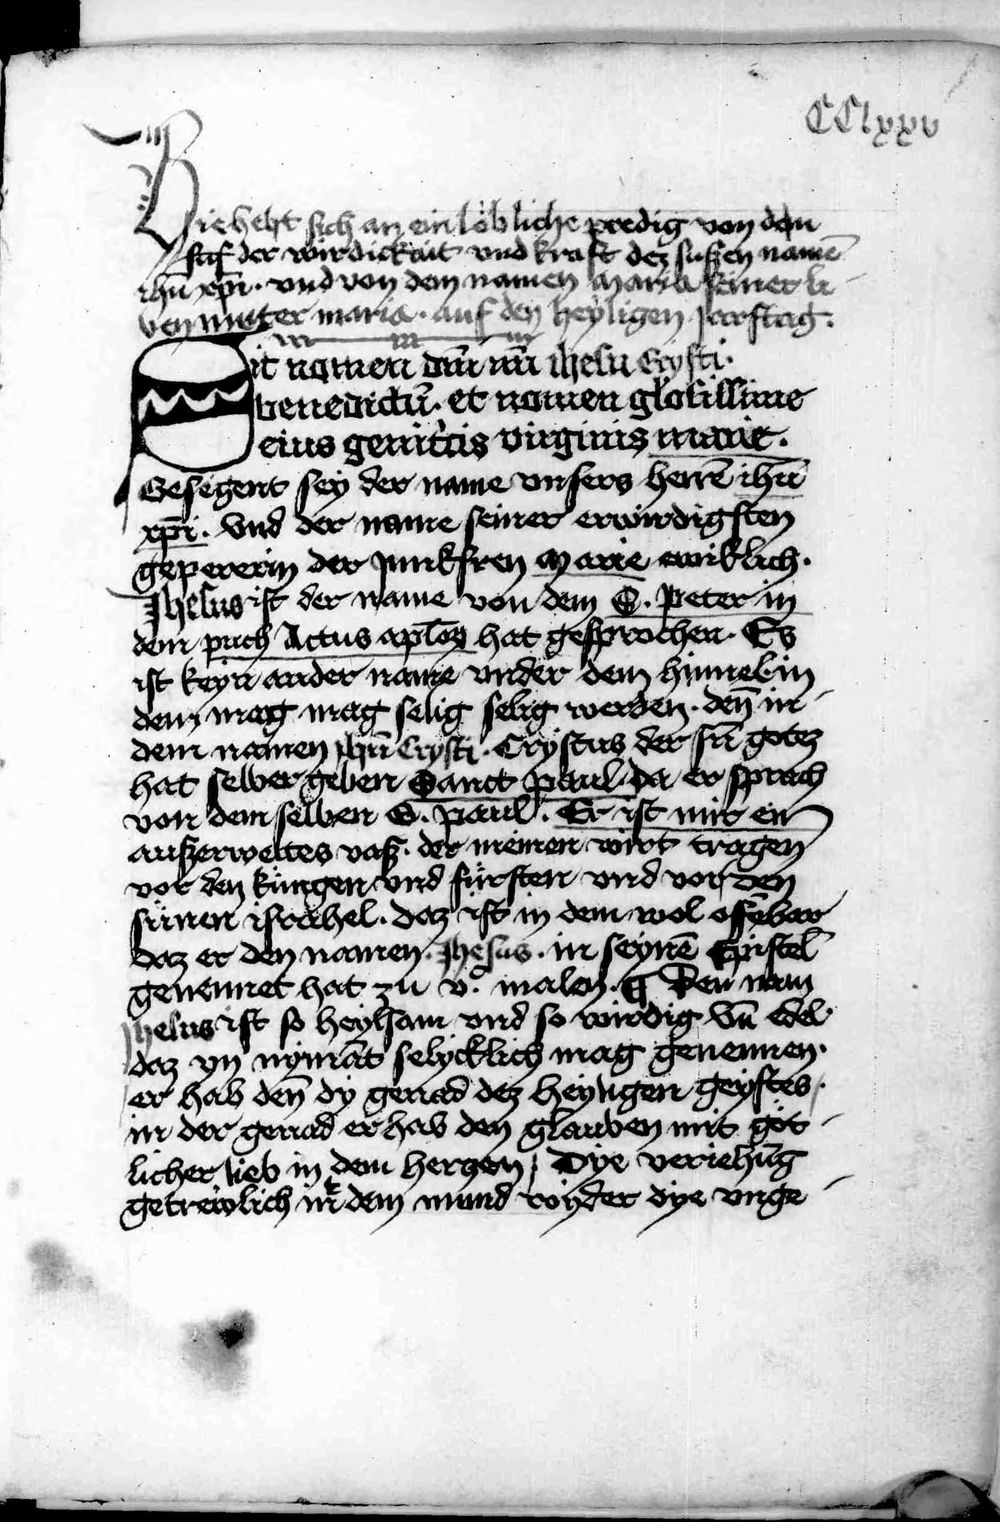 CClxxv
Hie hebt sich an ein löbliche predig von dem
fuf der wirdickait und kraft dez sußen namē
ihū xpī. und von dem namen Maria seiner li
ben muter maria. auf den heyligen Jarstag.
Sit nomen dn̄i nr̄i ihesu Crysti.
benedictū. et nomen gl'osissime
eius genit'cis virginis marie.
Gesegent sey der name unsers herrē ihū
xpī. Und der name seiner erwirdigsten
gepererin der Junkfren Marie ewiklich.
Jhesus ist der name von dem S. Peter in
dem puch Actus apl'oꝝ hat gesprochen. Es
ist keyn ander name under dem himel in
dem mag mag selig selig werden. den̄ in
dem namen ihū Crysti. Crystus der sū gotez
hat selber geben Sanct paul. da er sprach
von dem selben S. paul. Er ist mir ein
außerweltes vaß. der meinen wirt tragen
vor den küngen und fürsten und vor den
sünen israhel. daz ist in dem wol offēbar
daz er den namen. Jhesus. in seynē Epistel
genennet hat zu vᶜ malen. ¶ Den nam
Jhesus ist so heylsam und so wirdig Uñ edel
daz yn nymāt selycklich mag genennen.
er hab den̄ dy genad dez heyligen geystes.
in der genad er hab den glauben mit göt
licher lieb in dem hertzen / Dye veriehūg
getrewlich in dem mund wyder dye unge